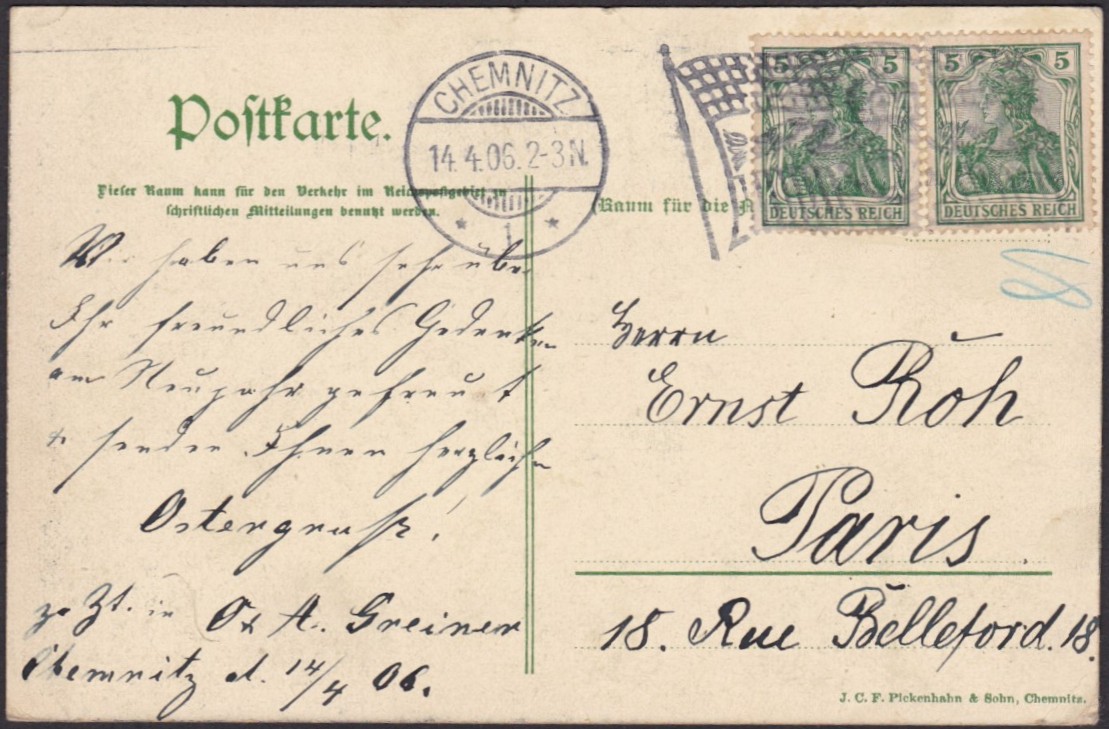 Postkarte.
Dieser Raum kann für den Verkehr im Reichspostgebiet zu
schriftlichen Mitteilungen benutzt werden.
CHEMNITZ
14.4.06.2-3N.
* 1 *
(Raum für die A
5 5
DEUTSCHES REICH
5 5
DEUTSCHES REICH
Wir haben uns sehr über
Ihr freundliches Gedenken
am Neujahr gefreut
& senden Ihnen herzlichen
Ostergruß!
z. Zt. in A. Greiner
Chemnitz d. 14/4 06.
Herrn
Ernst Roh
Paris.
18. Rue Belleford. 18.
J. C. F. Pickenhahn & Sohn, Chemnitz.